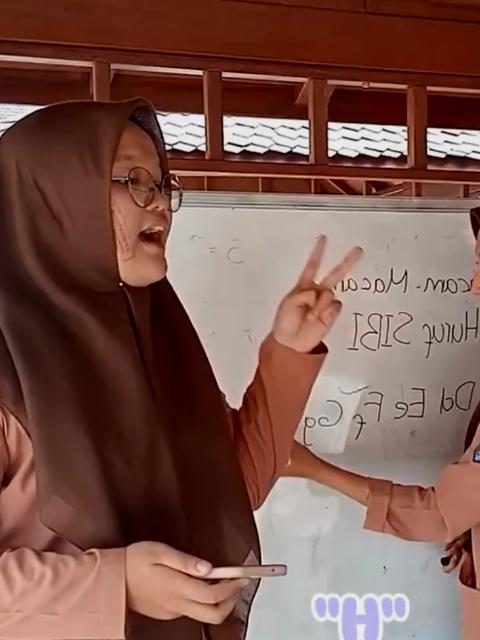 Macam-Macam
Huruf SIBI
Dd Ee Ff Gg
"H"